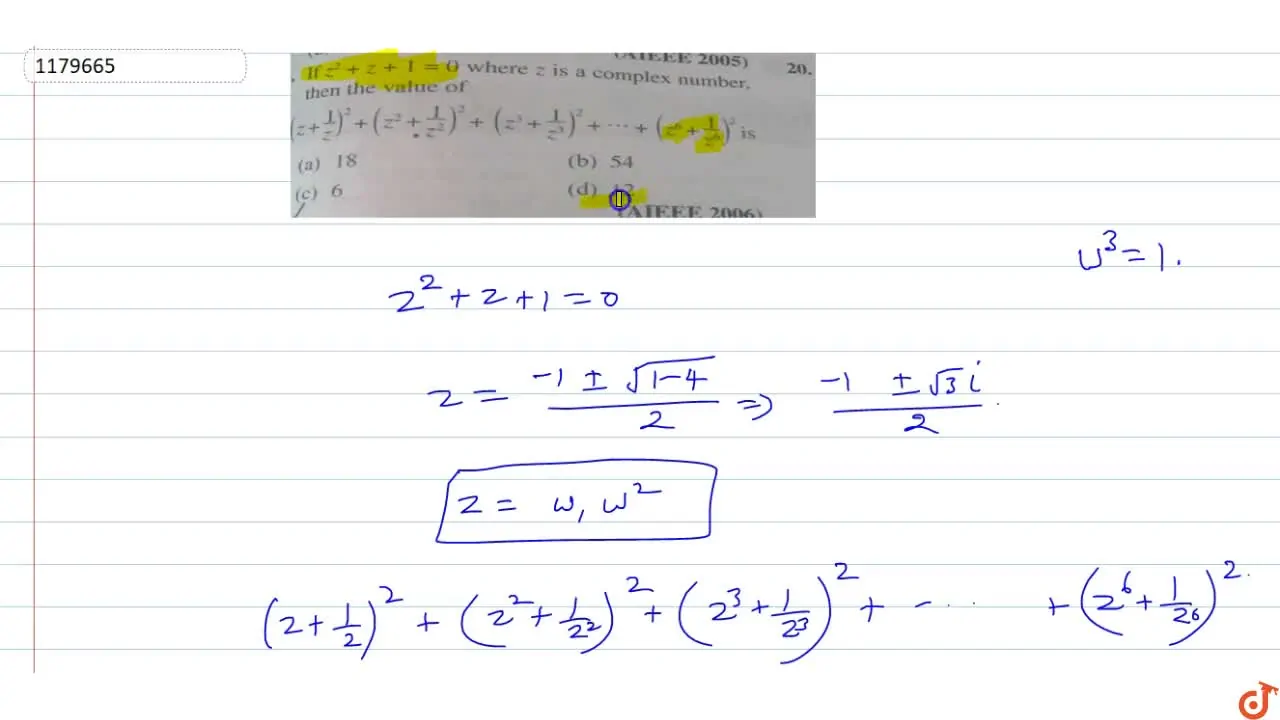 1179665
(AIEEE 2005)
20.
If z² + z + 1 = 0 where z is a complex number,
then the value of
(z + 1/z)² + (z² + 1/z²)² + (z³ + 1/z³)² + ⋯ + (z⁶ + 1/z⁶)² is
(a) 18
(b) 54
(c) 6
(d) 12
(AIEEE 2006)
ω³ = 1.
z² + z + 1 = 0
z = (-1 ± √(1-4))/2 ⇒ (-1 ± √3 i)/2
z = ω, ω²
(z + 1/z)² + (z² + 1/z²)² + (z³ + 1/z³)² + - .... + (z⁶ + 1/z⁶)².